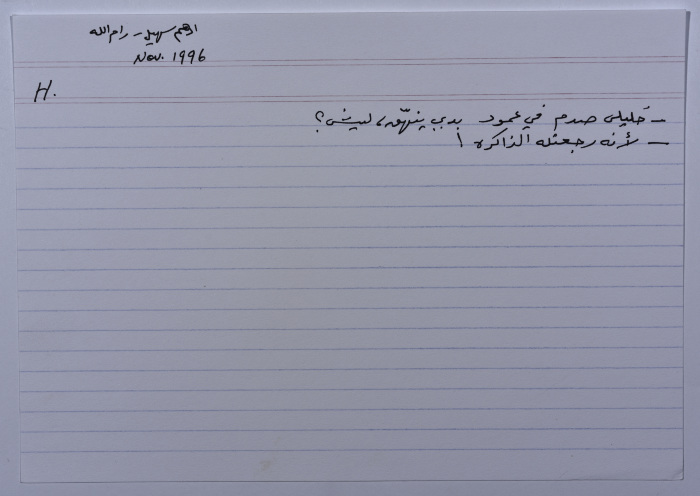 ادهم سهيل - رام الله
Nov. 1996
H.
- خليلي صدم في عمود بدي ينهّق، ليش؟
- لأنه رجعتله الذاكره !